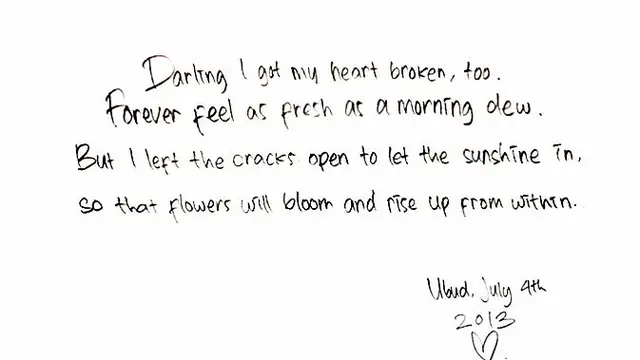 Darling I got my heart broken, too.
Forever feel as fresh as a morning dew.
But I left the cracks open to let the sunshine in,
so that flowers will bloom and rise up from within.
Ubud, July 4th
2013